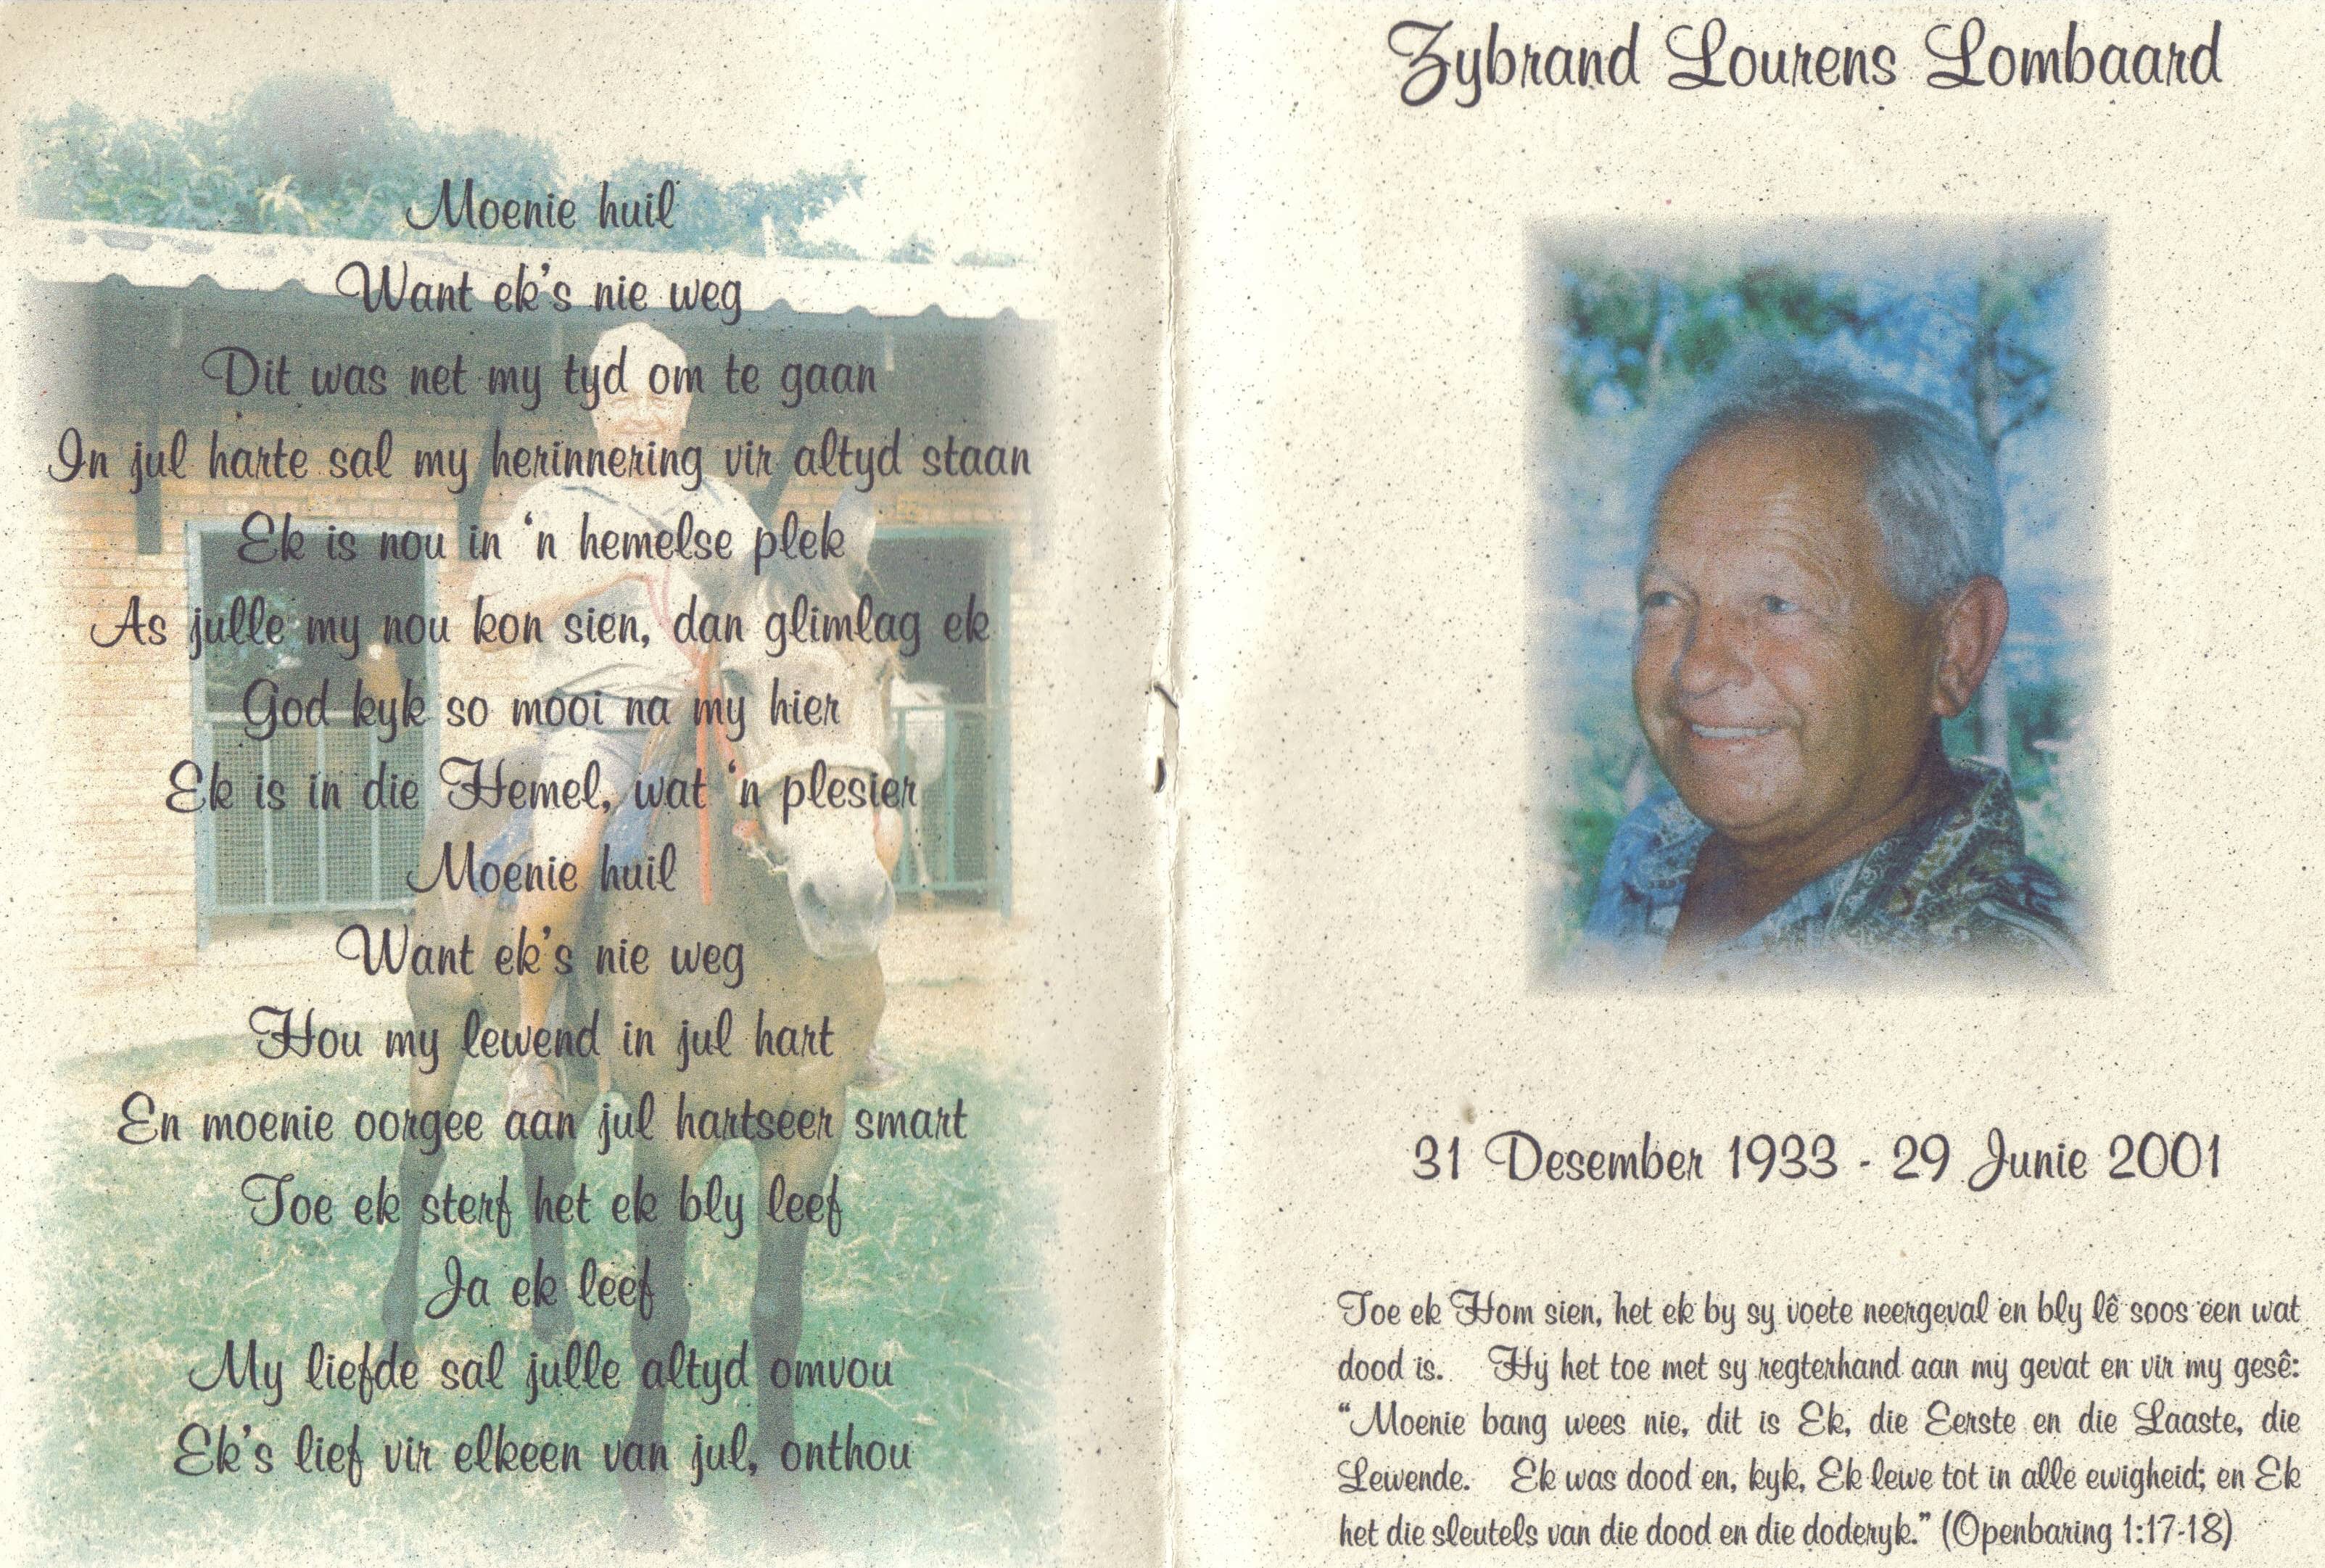 Moenie huil
Want ek's nie weg
Dit was net my tyd om te gaan
In jul harte sal my herinnering vir altyd staan
Ek is nou in 'n hemelse plek
As julle my nou kon sien, dan glimlag ek
God kyk so mooi na my hier
Ek is in die Hemel, wat 'n plesier
Moenie huil
Want ek's nie weg
Hou my lewend in jul hart
En moenie oorgee aan jul hartseer smart
Toe ek sterf het ek bly leef
Ja ek leef
My liefde sal julle altyd omvou
Ek's lief vir elkeen van jul, onthou
Zybrand Lourens Lombaard
31 Desember 1933 - 29 Junie 2001
Toe ek Hom sien, het ek by sy voete neergeval en bly lê soos een wat
dood is. Hy het toe met sy regterhand aan my gevat en vir my gesê:
“Moenie bang wees nie, dit is Ek, die Eerste en die Laaste, die
Lewende. Ek was dood en, kyk, Ek lewe tot in alle ewigheid; en Ek
het die sleutels van die dood en die doderyk.” (Openbaring 1:17-18)